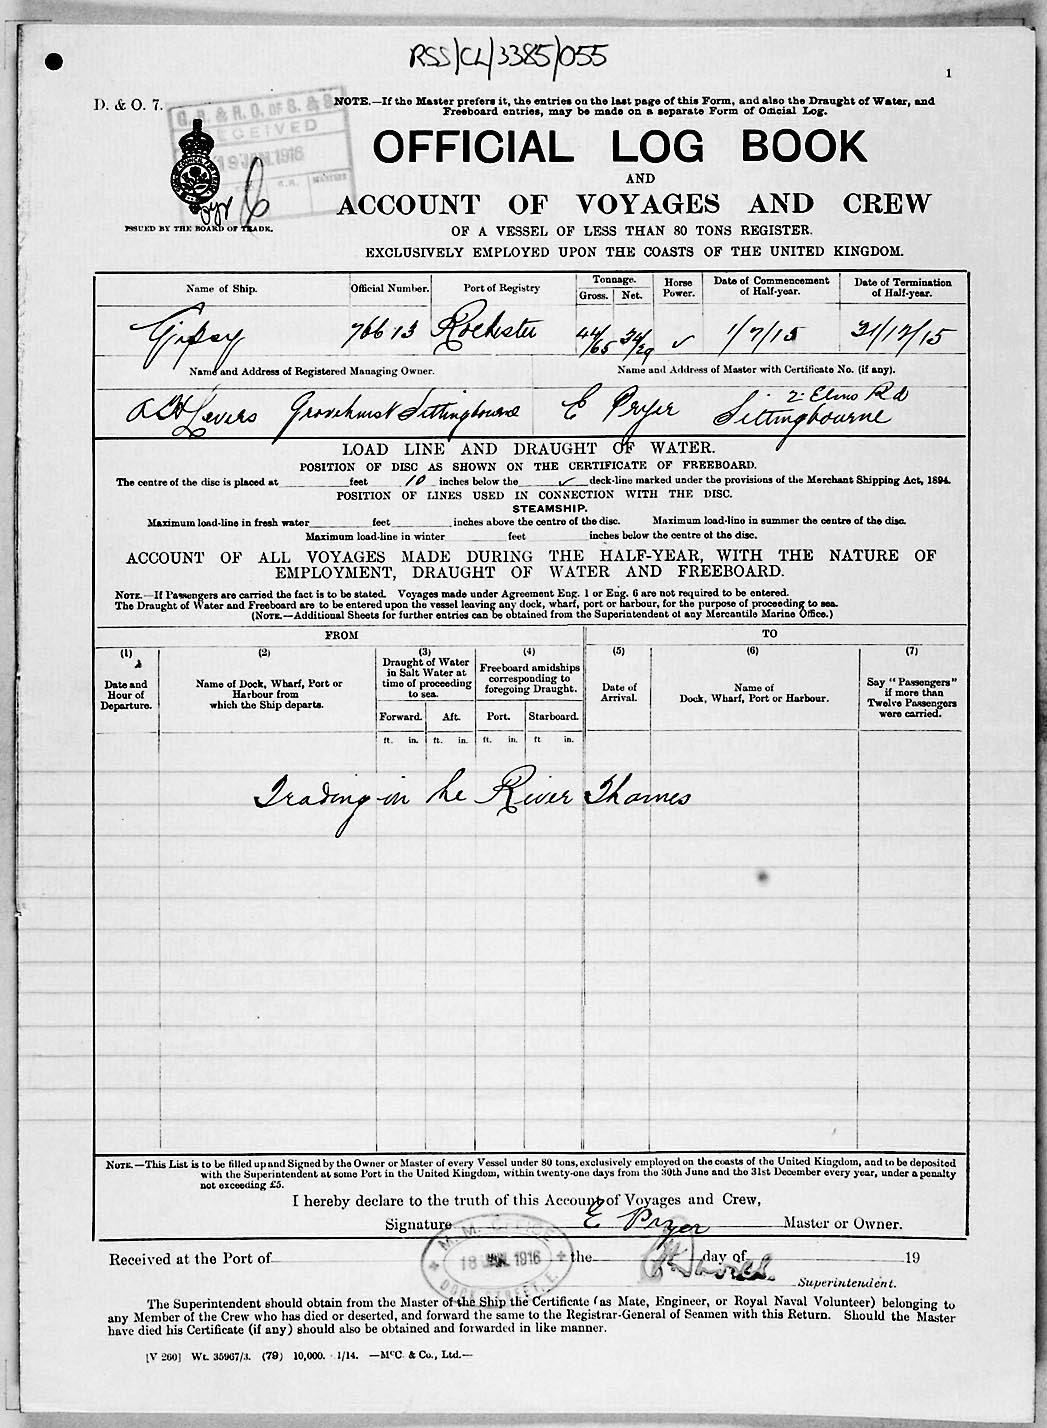 RSS/CL/3385/055
1
D. & O. 7.
NOTE.—If the Master prefers it, the entries on the last page of this Form, and also the Draught of Water, and
Freeboard entries, may be made on a separate Form of Official Log.
G. R. & R. O. OF S. & S.
RECEIVED
19 JAN. 1916
OFFICIAL LOG BOOK
AND
ACCOUNT OF VOYAGES AND CREW
ISSUED BY THE BOARD OF TRADE.
OF A VESSEL OF LESS THAN 80 TONS REGISTER.
EXCLUSIVELY EMPLOYED UPON THE COASTS OF THE UNITED KINGDOM.
Name of Ship. Official Number. Port of Registry Tonnage. Gross. Net. Horse Power. Date of Commencement of Half-year. Date of Termination of Half-year.
Gipsy 76613 Rochester 44/65 34/29 ✓ 1/7/15 31/12/15
Name and Address of Registered Managing Owner. Name and Address of Master with Certificate No. (if any).
Grovehurst Sittingbourne E Pryer 2 Elms Rd
Sittingbourne
LOAD LINE AND DRAUGHT OF WATER.
POSITION OF DISC AS SHOWN ON THE CERTIFICATE OF FREEBOARD.
The centre of the disc is placed at feet 10 inches below the ✓ deck-line marked under the provisions of the Merchant Shipping Act, 1894.
POSITION OF LINES USED IN CONNECTION WITH THE DISC.
STEAMSHIP.
Maximum load-line in fresh water feet inches above the centre of the disc. Maximum load-line in summer the centre of the disc.
Maximum load-line in winter feet inches below the centre of the disc.
ACCOUNT OF ALL VOYAGES MADE DURING THE HALF-YEAR, WITH THE NATURE OF
EMPLOYMENT, DRAUGHT OF WATER AND FREEBOARD.
NOTE.—If Passengers are carried the fact is to be stated. Voyages made under Agreement Eng. 1 or Eng. 6 are not required to be entered.
The Draught of Water and Freeboard are to be entered upon the vessel leaving any dock, wharf, port or harbour, for the purpose of proceeding to sea.
(NOTE.—Additional Sheets for further entries can be obtained from the Superintendent of any Mercantile Marine Office.)
FROM TO
(1) (2) (3) (4) (5) (6) (7)
Date and Hour of Departure. Name of Dock, Wharf, Port or Harbour from which the Ship departs. Draught of Water in Salt Water at time of proceeding to sea. Freeboard amidships corresponding to foregoing Draught. Date of Arrival. Name of Dock, Wharf, Port or Harbour. Say "Passengers" if more than Twelve Passengers were carried.
Forward. Aft. Port. Starboard.
ft. in. ft. in. ft. in. ft in.
Trading in the River Thames
NOTE.—This List is to be filled up and Signed by the Owner or Master of every Vessel under 80 tons, exclusively employed on the coasts of the United Kingdom, and to be deposited
with the Superintendent at some Port in the United Kingdom, within twenty-one days from the 30th June and the 31st December every year, under a penalty
not exceeding £5.
I hereby declare to the truth of this Account of Voyages and Crew,
Signature E Pryer Master or Owner.
M. M. OFFICE
18 JAN. 1916
DOCK STREET, E.
Received at the Port of the day of 19
Superintendent.
The Superintendent should obtain from the Master of the Ship the Certificate (as Mate, Engineer, or Royal Naval Volunteer) belonging to
any Member of the Crew who has died or deserted, and forward the same to the Registrar-General of Seamen with this Return. Should the Master
have died his Certificate (if any) should also be obtained and forwarded in like manner.
[V 260] Wt. 35967/3. (79) 10,000. 1/14. —McC. & Co., Ltd.—